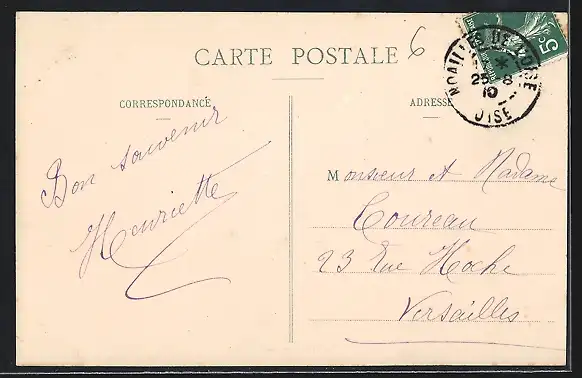 CARTE POSTALE
6
NOAILLES DE L'OISE
25 - 8
10
OISE
CORRESPONDANCE
ADRESSE
Bon souvenir
Henriette
Monsieur et Madame
Coureau
23 Rue Hoche
Versailles